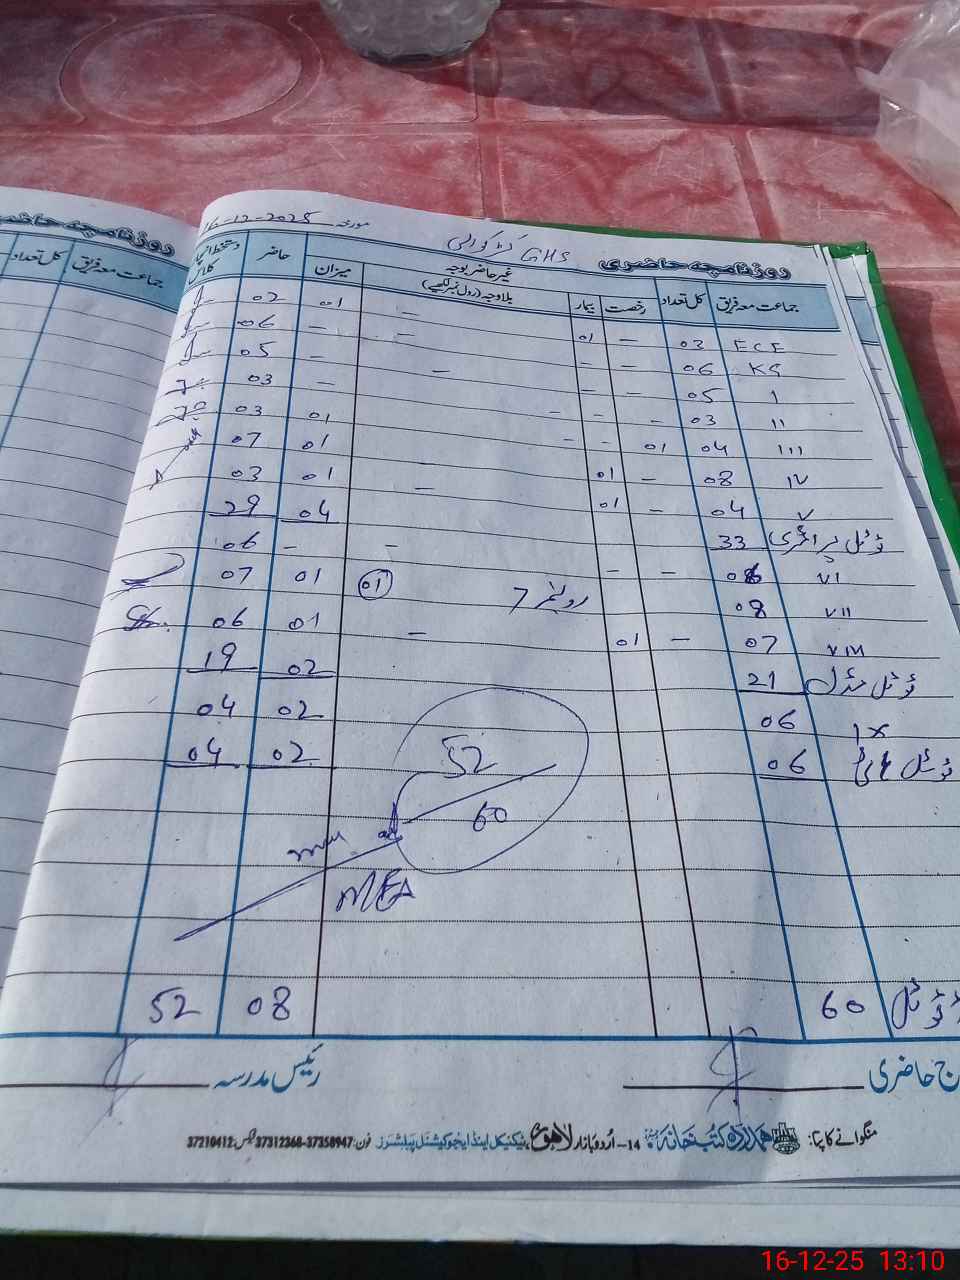 روزنامچہ حاضری GHS مورخہ 16-12-2025
جماعت معہ فریق کل تعداد رخصت بیمار غیر حاضر بوجہ بلاوجہ (رول نمبر لکھیے) میزان حاضر دستخط
ECE 03 – 01 – 01 02
KG 06 – – – – 06
I 05 – – – – 05
II 03 – – – – 03
III 04 01 – – 01 03
IV 08 – 01 – 01 07
V 04 – 01 – 01 03
ٹوٹل پرائمری 33 04 29
VI 06 – – – – 06
VII 08 رولنمبر 7 01 01 07
VIII 07 – 01 – 01 06
ٹوٹل مڈل 21 02 19
IX 06 02 04
ٹوٹل ہائی 06 02 04
52
60
MEA
ٹوٹل 60 08 52
ج حاضری رئیس مدرسہ
منگوانے کا پتا: ہمدرد کتب خانہ 14-اُردو بازار لاہور، ٹیکنیکل اینڈ ایجوکیشنل پبلشرز فون: 37358947-37312368 فیکس: 37210412
روزنامچہ حاضر
جماعت معہ فریق کل تعداد
16-12-25 13:10